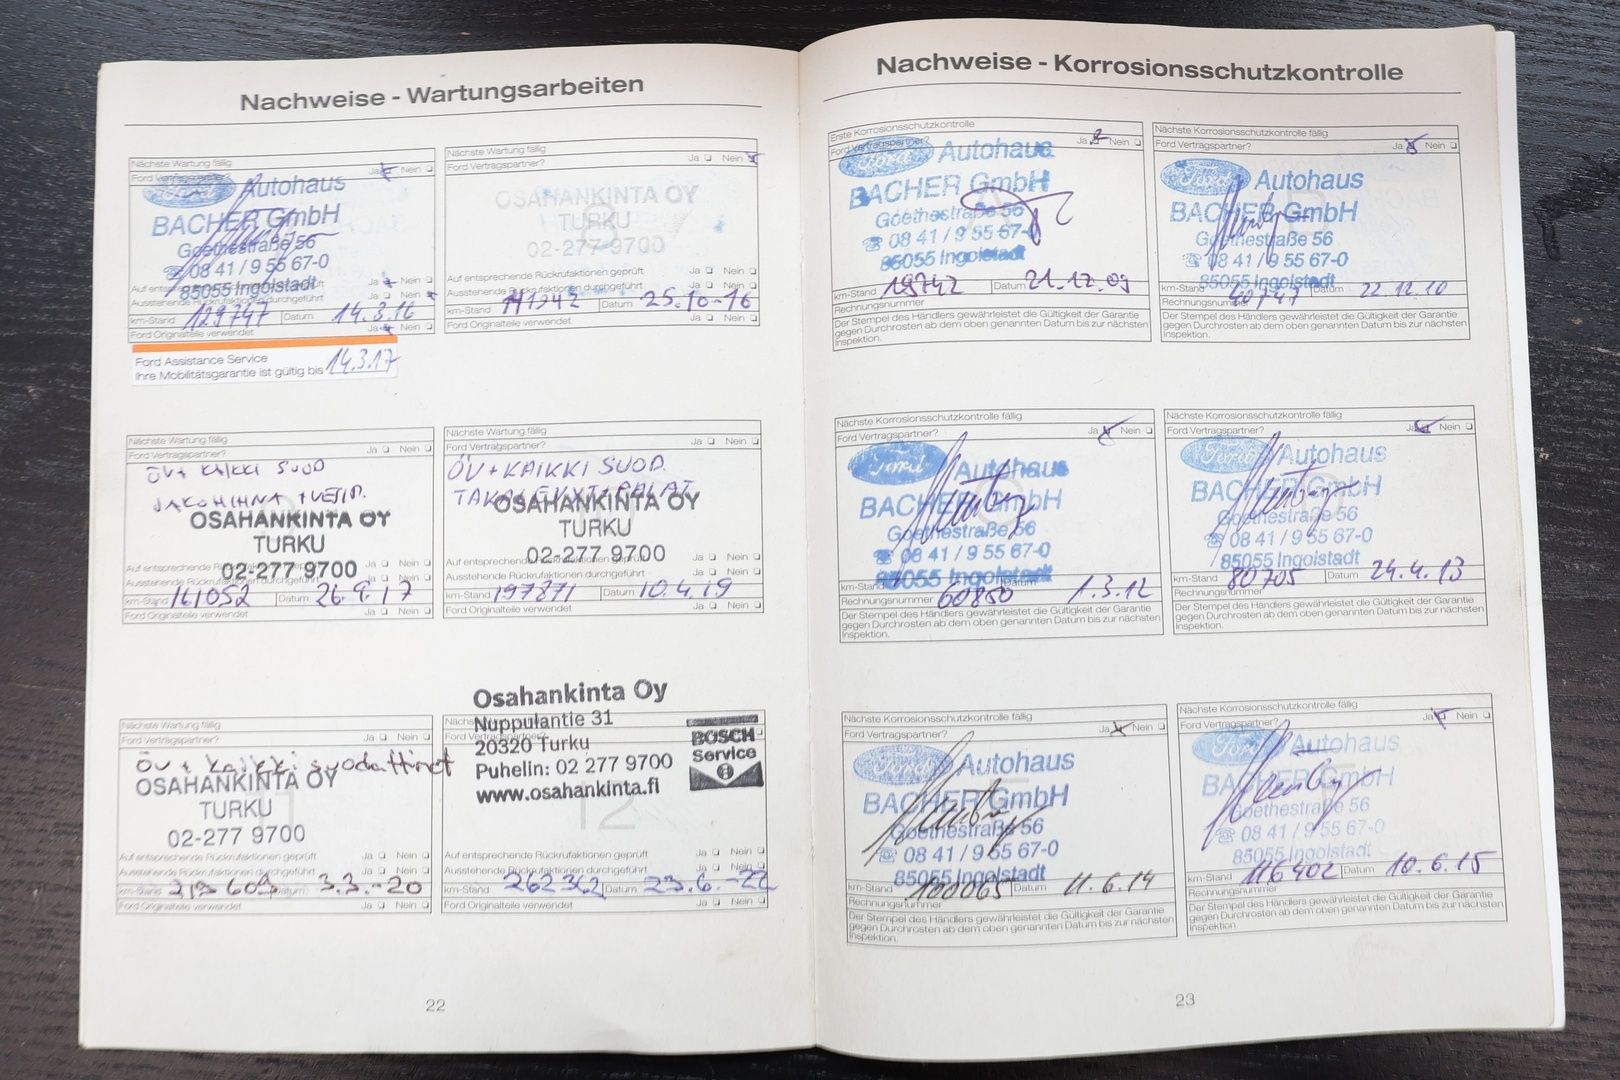 Nachweise - Wartungsarbeiten
Nächste Wartung fällig
Ford Vertragspartner? Ja Nein
Ford Autohaus
BACHER GmbH
Goethestraße 56
08 41 / 9 55 67-0
85055 Ingolstadt
Ja Nein
Ausstehende Rückrufaktionen durchgeführt Ja Nein
km-Stand 129747 Datum 14.3.16
Ford Originalteile verwendet Ja Nein
Ford Assistance Service
Ihre Mobilitätsgarantie ist gültig bis 14.3.17
Nächste Wartung fällig
Ford Vertragspartner? Ja Nein
OSAHANKINTA OY
TURKU
02-277 9700
Auf entsprechende Rückrufaktionen geprüft Ja Nein
Ausstehende Rückrufaktionen durchgeführt Ja Nein
km-Stand Datum 25.10-16
Ford Originalteile verwendet Ja Nein
Nächste Wartung fällig
Ford Vertragspartner? Ja Nein
ÖV+ KAIKKI SUOD
JAKOHIHNA + VESIP.
OSAHANKINTA OY
TURKU
02-277 9700
Auf entsprechende Rückrufaktionen geprüft Ja Nein
Ausstehende Rückrufaktionen durchgeführt Ja Nein
km-Stand 161052 Datum 26.9.17
Ford Originalteile verwendet Ja Nein
Nächste Wartung fällig
Ford Vertragspartner? Ja Nein
ÖV+KAIKKI SUOD.
OSAHANKINTA OY
TURKU
02-277 9700
Auf entsprechende Rückrufaktionen geprüft Ja Nein
Ausstehende Rückrufaktionen durchgeführt Ja Nein
km-Stand 197871 Datum 10.4.19
Ford Originalteile verwendet Ja Nein
Nächste Wartung fällig
Ford Vertragspartner? Ja Nein
ÖV + kaikki suodattimet
OSAHANKINTA OY
TURKU
02-277 9700
Auf entsprechende Rückrufaktionen geprüft Ja Nein
Ausstehende Rückrufaktionen durchgeführt Ja Nein
km-Stand Datum 3.3.-20
Ford Originalteile verwendet Ja Nein
Osahankinta Oy
Nuppulantie 31
20320 Turku
Puhelin: 02 277 9700
www.osahankinta.fi
BOSCH
Service
12
Auf entsprechende Rückrufaktionen geprüft Ja Nein
Ausstehende Rückrufaktionen durchgeführt Ja Nein
km-Stand 262362 Datum 23.6.-22
Ford Originalteile verwendet Ja Nein
22
Nachweise - Korrosionsschutzkontrolle
Erste Korrosionsschutzkontrolle
Ford Vertragspartner? Ja Nein
Ford Autohaus
BACHER GmbH
Goethestraße 56
08 41 / 9 55 67-0
85055 Ingolstadt
km-Stand 19742 Datum 21.12.09
Rechnungsnummer
Der Stempel des Händlers gewährleistet die Gültigkeit der Garantie
gegen Durchrosten ab dem oben genannten Datum bis zur nächsten
Inspektion.
Nächste Korrosionsschutzkontrolle fällig
Ford Vertragspartner? Ja Nein
Ford Autohaus
BACHER GmbH
Goethestraße 56
08 41 / 9 55 67-0
85055 Ingolstadt
km-Stand 40747 Datum 22.12.10
Rechnungsnummer
Der Stempel des Händlers gewährleistet die Gültigkeit der Garantie
gegen Durchrosten ab dem oben genannten Datum bis zur nächsten
Inspektion.
Nächste Korrosionsschutzkontrolle fällig
Ford Vertragspartner? Ja Nein
Ford Autohaus
BACHER GmbH
Goethestraße 56
08 41 / 9 55 67-0
85055 Ingolstadt
km-Stand 60850 Datum 1.3.12
Rechnungsnummer
Der Stempel des Händlers gewährleistet die Gültigkeit der Garantie
gegen Durchrosten ab dem oben genannten Datum bis zur nächsten
Inspektion.
Nächste Korrosionsschutzkontrolle fällig
Ford Vertragspartner? Ja Nein
Ford Autohaus
BACHER GmbH
Goethestraße 56
08 41 / 9 55 67-0
85055 Ingolstadt
km-Stand 80705 Datum 24.4.13
Rechnungsnummer
Der Stempel des Händlers gewährleistet die Gültigkeit der Garantie
gegen Durchrosten ab dem oben genannten Datum bis zur nächsten
Inspektion.
Nächste Korrosionsschutzkontrolle fällig
Ford Vertragspartner? Ja Nein
Ford Autohaus
BACHER GmbH
Goethestraße 56
08 41 / 9 55 67-0
85055 Ingolstadt
km-Stand 100065 Datum 11.6.14
Rechnungsnummer
Der Stempel des Händlers gewährleistet die Gültigkeit der Garantie
gegen Durchrosten ab dem oben genannten Datum bis zur nächsten
Inspektion.
Nächste Korrosionsschutzkontrolle fällig
Ford Vertragspartner? Ja Nein
Ford Autohaus
BACHER GmbH
Goethestraße 56
08 41 / 9 55 67-0
85055 Ingolstadt
km-Stand 116402 Datum 10.6.15
Rechnungsnummer
Der Stempel des Händlers gewährleistet die Gültigkeit der Garantie
gegen Durchrosten ab dem oben genannten Datum bis zur nächsten
Inspektion.
23